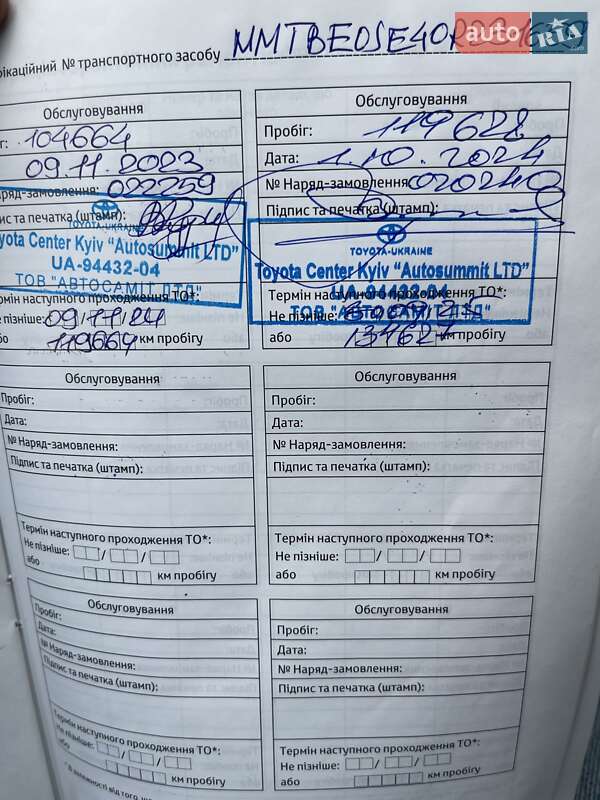 auto RIA.com
фікаційний № транспортного засобу MMTBE0SE40R
Обслуговування
г: 104664
09.11.2023
Наряд-замовлення: 022259
пис та печатка (штамп):
TOYOTA-UKRAINE
Toyota Center Kyiv “Autosummit LTD”
UA-94432-04
ТОВ "АВТОСАМІТ ЛТД"
Термін наступного проходження ТО*:
Не пізніше: 09/11/24
або 119664 км пробігу
Обслуговування
Пробіг: 119628
Дата: 1.10.2024
№ Наряд-замовлення:
Підпис та печатка (штамп):
TOYOTA-UKRAINE
Toyota Center Kyiv “Autosummit LTD”
UA-94432-04
ТОВ "АВТОСАМІТ ЛТД"
Термін наступного проходження ТО*:
Не пізніше:
або 134627 км пробігу
Обслуговування
Пробіг:
Дата:
№ Наряд-замовлення:
Підпис та печатка (штамп):
Термін наступного проходження ТО*:
Не пізніше: / /
або км пробігу
Обслуговування
Пробіг:
Дата:
№ Наряд-замовлення:
Підпис та печатка (штамп):
Термін наступного проходження ТО*:
Не пізніше: / /
або км пробігу
Обслуговування
Пробіг:
Дата:
№ Наряд-замовлення:
Підпис та печатка (штамп):
Термін наступного проходження ТО*:
Не пізніше: / /
або км пробігу
Обслуговування
Пробіг:
Дата:
№ Наряд-замовлення:
Підпис та печатка (штамп):
Термін наступного проходження ТО*:
Не пізніше: / /
або км пробігу
* В залежності від того, що